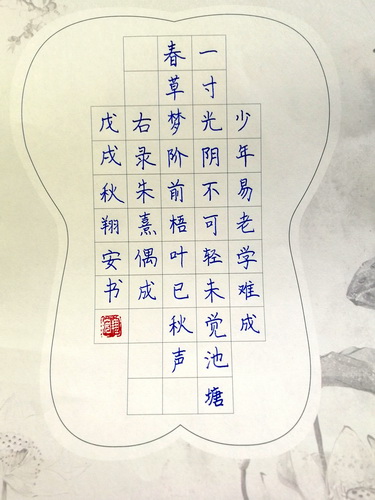 少年易老学难成
一寸光阴不可轻未觉池塘
春草梦阶前梧叶已秋声
右录朱熹偶成
戊戌秋翔安书